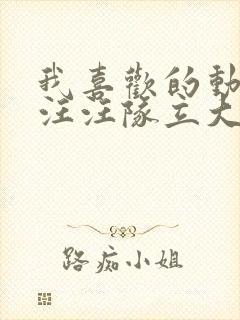 我喜歡的動
汪汪隊立大
路痴小姐